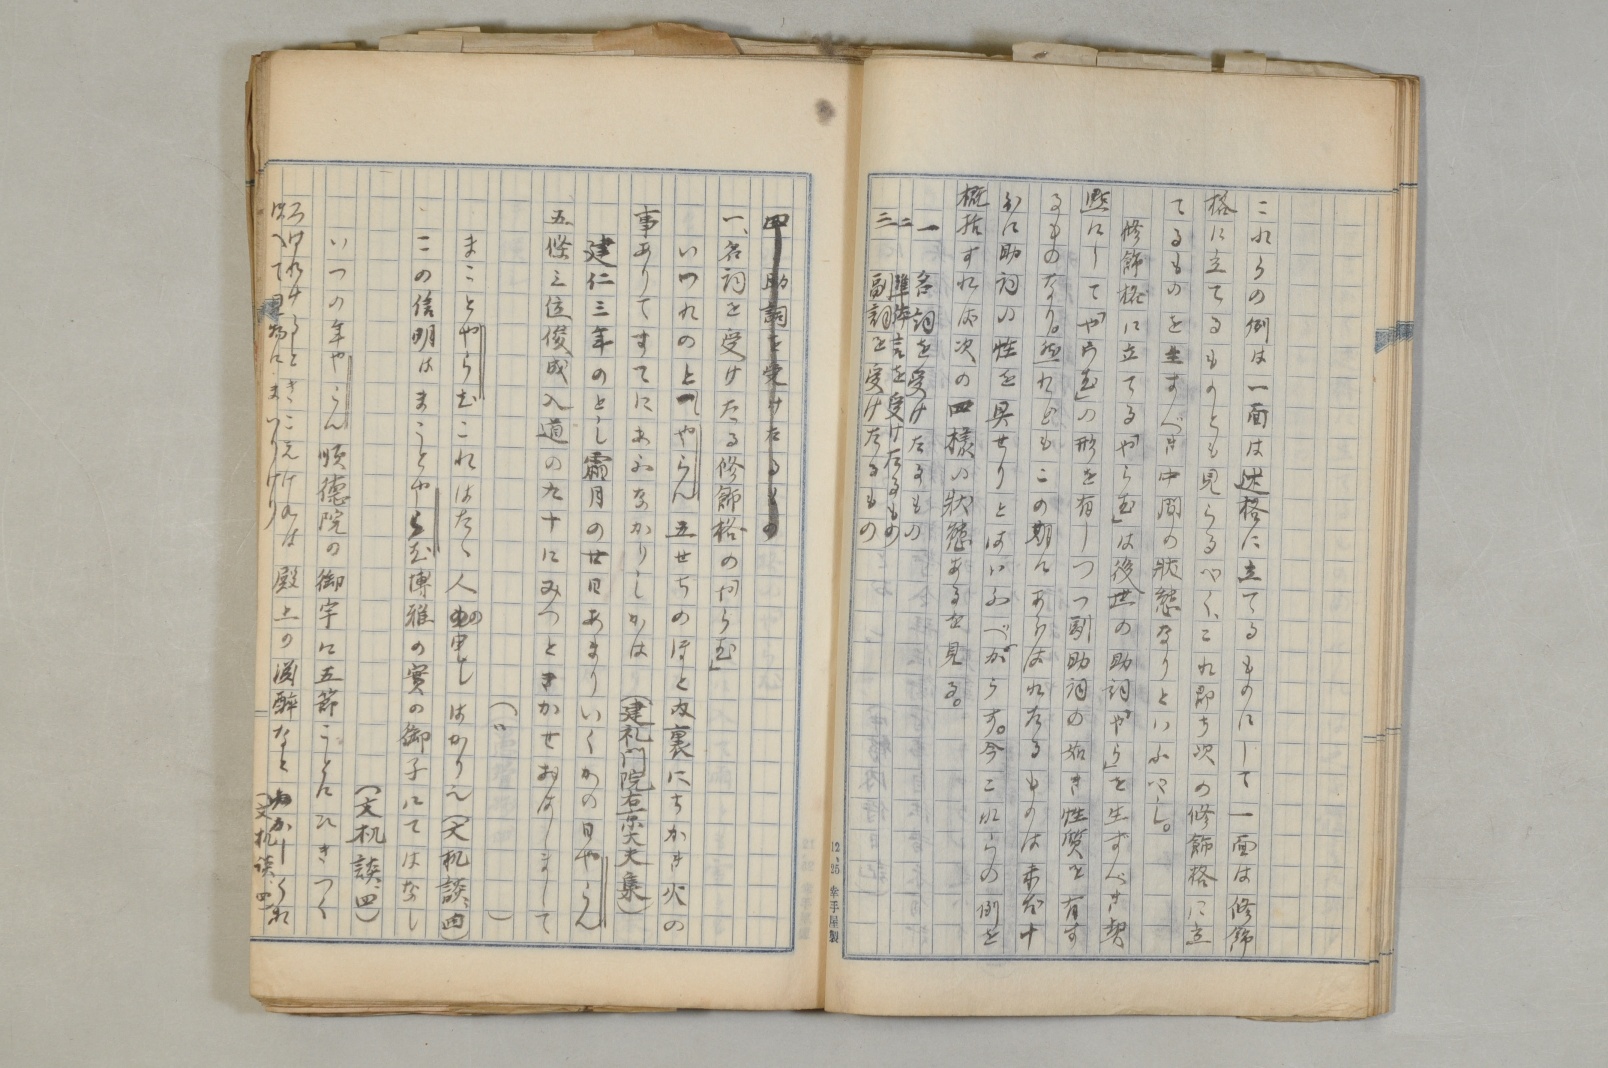 これらの例は一面は述格に立てるものにして一面は修飾
格に立てるものとも見らるべく、これ即ち次の修飾格に立
てるものを生ずべき中間の状態なりといふべし。
修飾格に立てる「やらむ」は後世の助詞「やら」を生ずべき契
點にして「やらむ」の形を有しつつ副助詞の如き性質を有す
るものなり。然れどもこの期にあらはれたるものは未だ十
分に助詞の性を具せりとはいふべからず。今これらの例を
概括すれば次の四様の状態あるを見る。
一 名詞を受けたるもの
二 準体言を受けたるもの
三 副詞を受けたるもの
12、25 幸手屋製
四 助詞を受けたるもの
一、名詞を受けたる修飾格の「やらむ」
いつれのとしやらん五せちのほと内裏にちかき火の
事ありてすてにあふなかりしかは (建礼門院右京大夫集)
建仁三年のとし霜月の廿日あまりいくかの日やらん
五條三位俊成入道の九十にみつときかせおはしまして
(〃 )
まことやらむこれはたゝ人の申しはかり也 (文机談、四)
この信明はまことやらむ博雅の實の御子にてはなし
(文机談、四)
いつの年やらん順徳院の御宇に五節ことにひきつく
ろはれけるときこえけるは殿上の淵醉なと
(文机談、四)